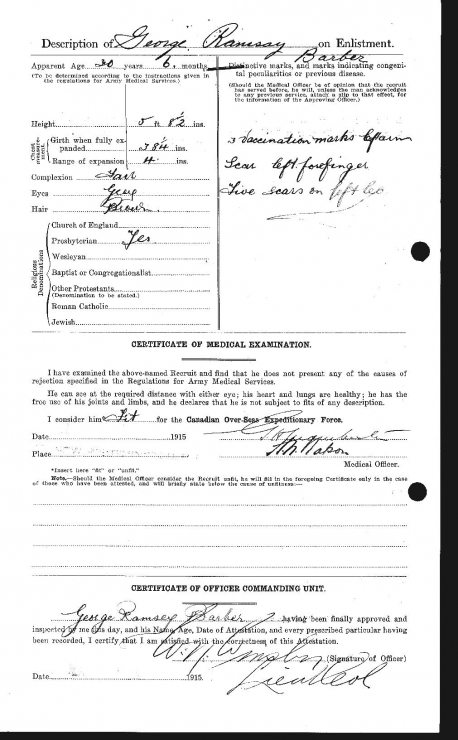 Description of George Ramsay Barber on Enlistment.
Apparent Age 20 years 6 months.
(To be determined according to the instructions given in the regulations for Army Medical Services.)
Distinctive marks, and marks indicating congenital peculiarities or previous disease.
(Should the Medical Officer be of opinion that the recruit has served before, he will, unless the man acknowledges to any previous service, attach a slip to that effect, for the information of the Approving Officer.)
Height 5 ft 8½ ins.
Chest measurement
Girth when fully expanded 38½ ins.
Range of expansion 4 ins.
Complexion Fair
Eyes Grey
Hair Brown
3 Vaccination marks L arm
Scar left forefinger
Five scars on left leg
Religious Denominations
Church of England
Presbyterian Yes
Wesleyan
Baptist or Congregationalist
Other Protestants
(Denomination to be stated.)
Roman Catholic
Jewish
CERTIFICATE OF MEDICAL EXAMINATION.
I have examined the above-named Recruit and find that he does not present any of the causes of
rejection specified in the Regulations for Army Medical Services.
He can see at the required distance with either eye; his heart and lungs are healthy; he has the
free use of his joints and limbs, and he declares that he is not subject to fits of any description.
I consider him* Fit for the Canadian Over-Seas Expeditionary Force.
Date 1915
Place
Medical Officer.
*Insert here "fit" or "unfit."
Note.—Should the Medical Officer consider the Recruit unfit, he will fill in the foregoing Certificate only in the case
of those who have been attested, and will briefly state below the cause of unfitness:—
CERTIFICATE OF OFFICER COMMANDING UNIT.
George Ramsey Barber having been finally approved and
inspected by me this day, and his Name, Age, Date of Attestation, and every prescribed particular having
been recorded, I certify that I am satisfied with the correctness of this Attestation.
(Signature of Officer)
Lieut Col
Date 1915.